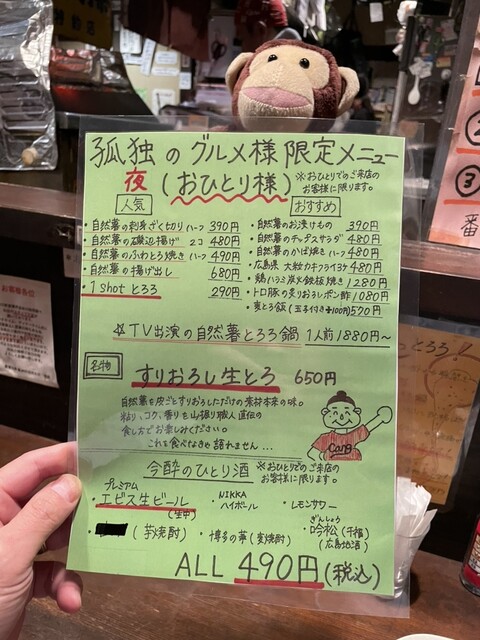 孤独のグルメ様限定メニュー
夜(おひとり様) ※おひとりでのご来店のお客様に限ります。
人気
・自然薯の刺身ざく切り ハーフ 390円
・自然薯の磯辺揚げ 2コ 480円
・自然薯のふわとろ焼き ハーフ 490円
・自然薯の揚げ出し 680円
・1shotとろろ 290円
おすすめ
・自然薯のお漬けもの 390円
・自然薯のチップスサラダ 480円
・自然薯のかば焼き ハーフ 480円
・広島県 大粒カキフライ3ケ 480円
・鶏ハラミ炭火鉄板焼き 1280円
・トロ豚の炙りおろしポン酢 1080円
・麦とろ飯(玉子付き+100円) 570円
☆TV出演の自然薯とろろ鍋 1人前1880円~
名物
すりおろし生とろ 650円
自然薯を皮ごとすりおろしただけの素材本来の味。
粘り、コク、香りを山掘り職人直伝の
食し方でお楽しみください。
これを食べなきゃ語れません…
今酔のひとり酒 ※おひとりでのご来店のお客様に限ります。
プレミアム
・エビス生ビール(生中)
・NIKKA ハイボール
・レモンサワー
(芋焼酎)
・博多の華(麦焼酎)
ぎんしょう
・吟松(千福)(広島地酒)
ALL 490円(税込)
②
③
番